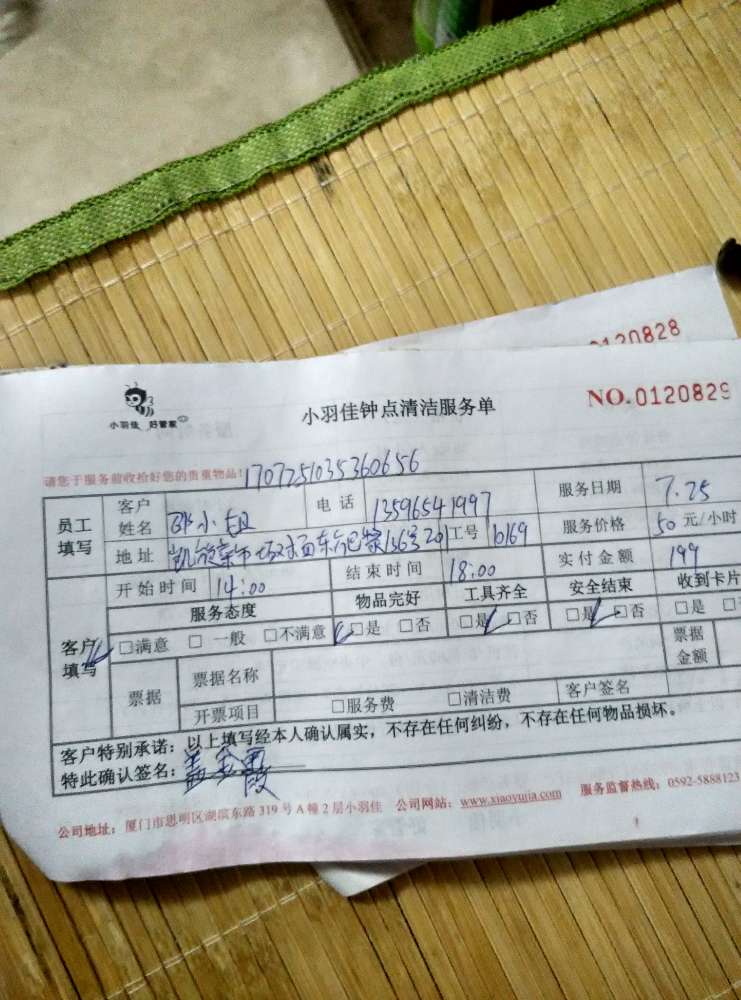 0120828
NO.0120829
小羽佳钟点清洁服务单
小羽佳 好管家
请您于服务前收拾好您的贵重物品！1707251035360656
员工填写 客户姓名 邵小姐 电话 13596541997 服务日期 7.25
地址 136号201 工号 6169 服务价格 50元/小时
客户填写 开始时间 14:00 结束时间 18:00 实付金额 199
服务态度 物品完好 工具齐全 安全结束 收到卡片
□满意 □一般 □不满意 □是 □否 □是 □否 □是 □否 □是
票据 票据名称 票据金额
开票项目 □服务费 □清洁费 客户签名
客户特别承诺：以上填写经本人确认属实，不存在任何纠纷，不存在任何物品损坏。
特此确认签名：
公司地址：厦门市思明区湖滨东路319号A幢2层小羽佳 公司网站：www.xiaoyujia.com 服务监督热线：0592-5888123